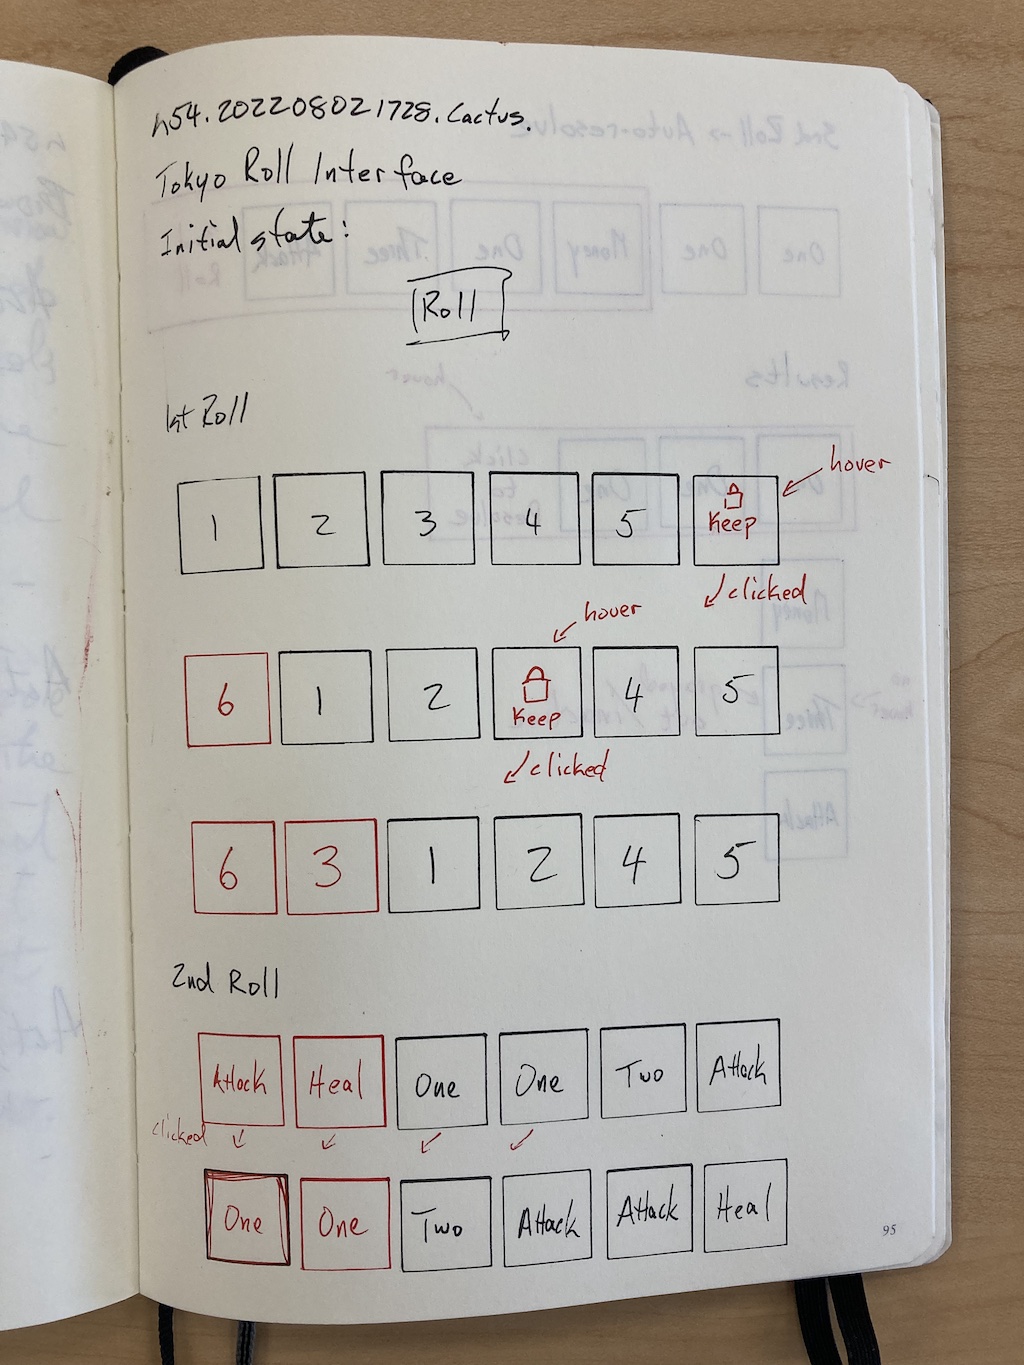 h54.202208021728.Cactus.
Tokyo Roll Interface
Initial state:
Roll
1st Roll
hover
1 2 3 4 5 Keep
clicked
hover
6 1 2 Keep 4 5
clicked
6 3 1 2 4 5
2nd Roll
Attack Heal One One Two Attack
clicked
One One Two Attack Attack Heal
95